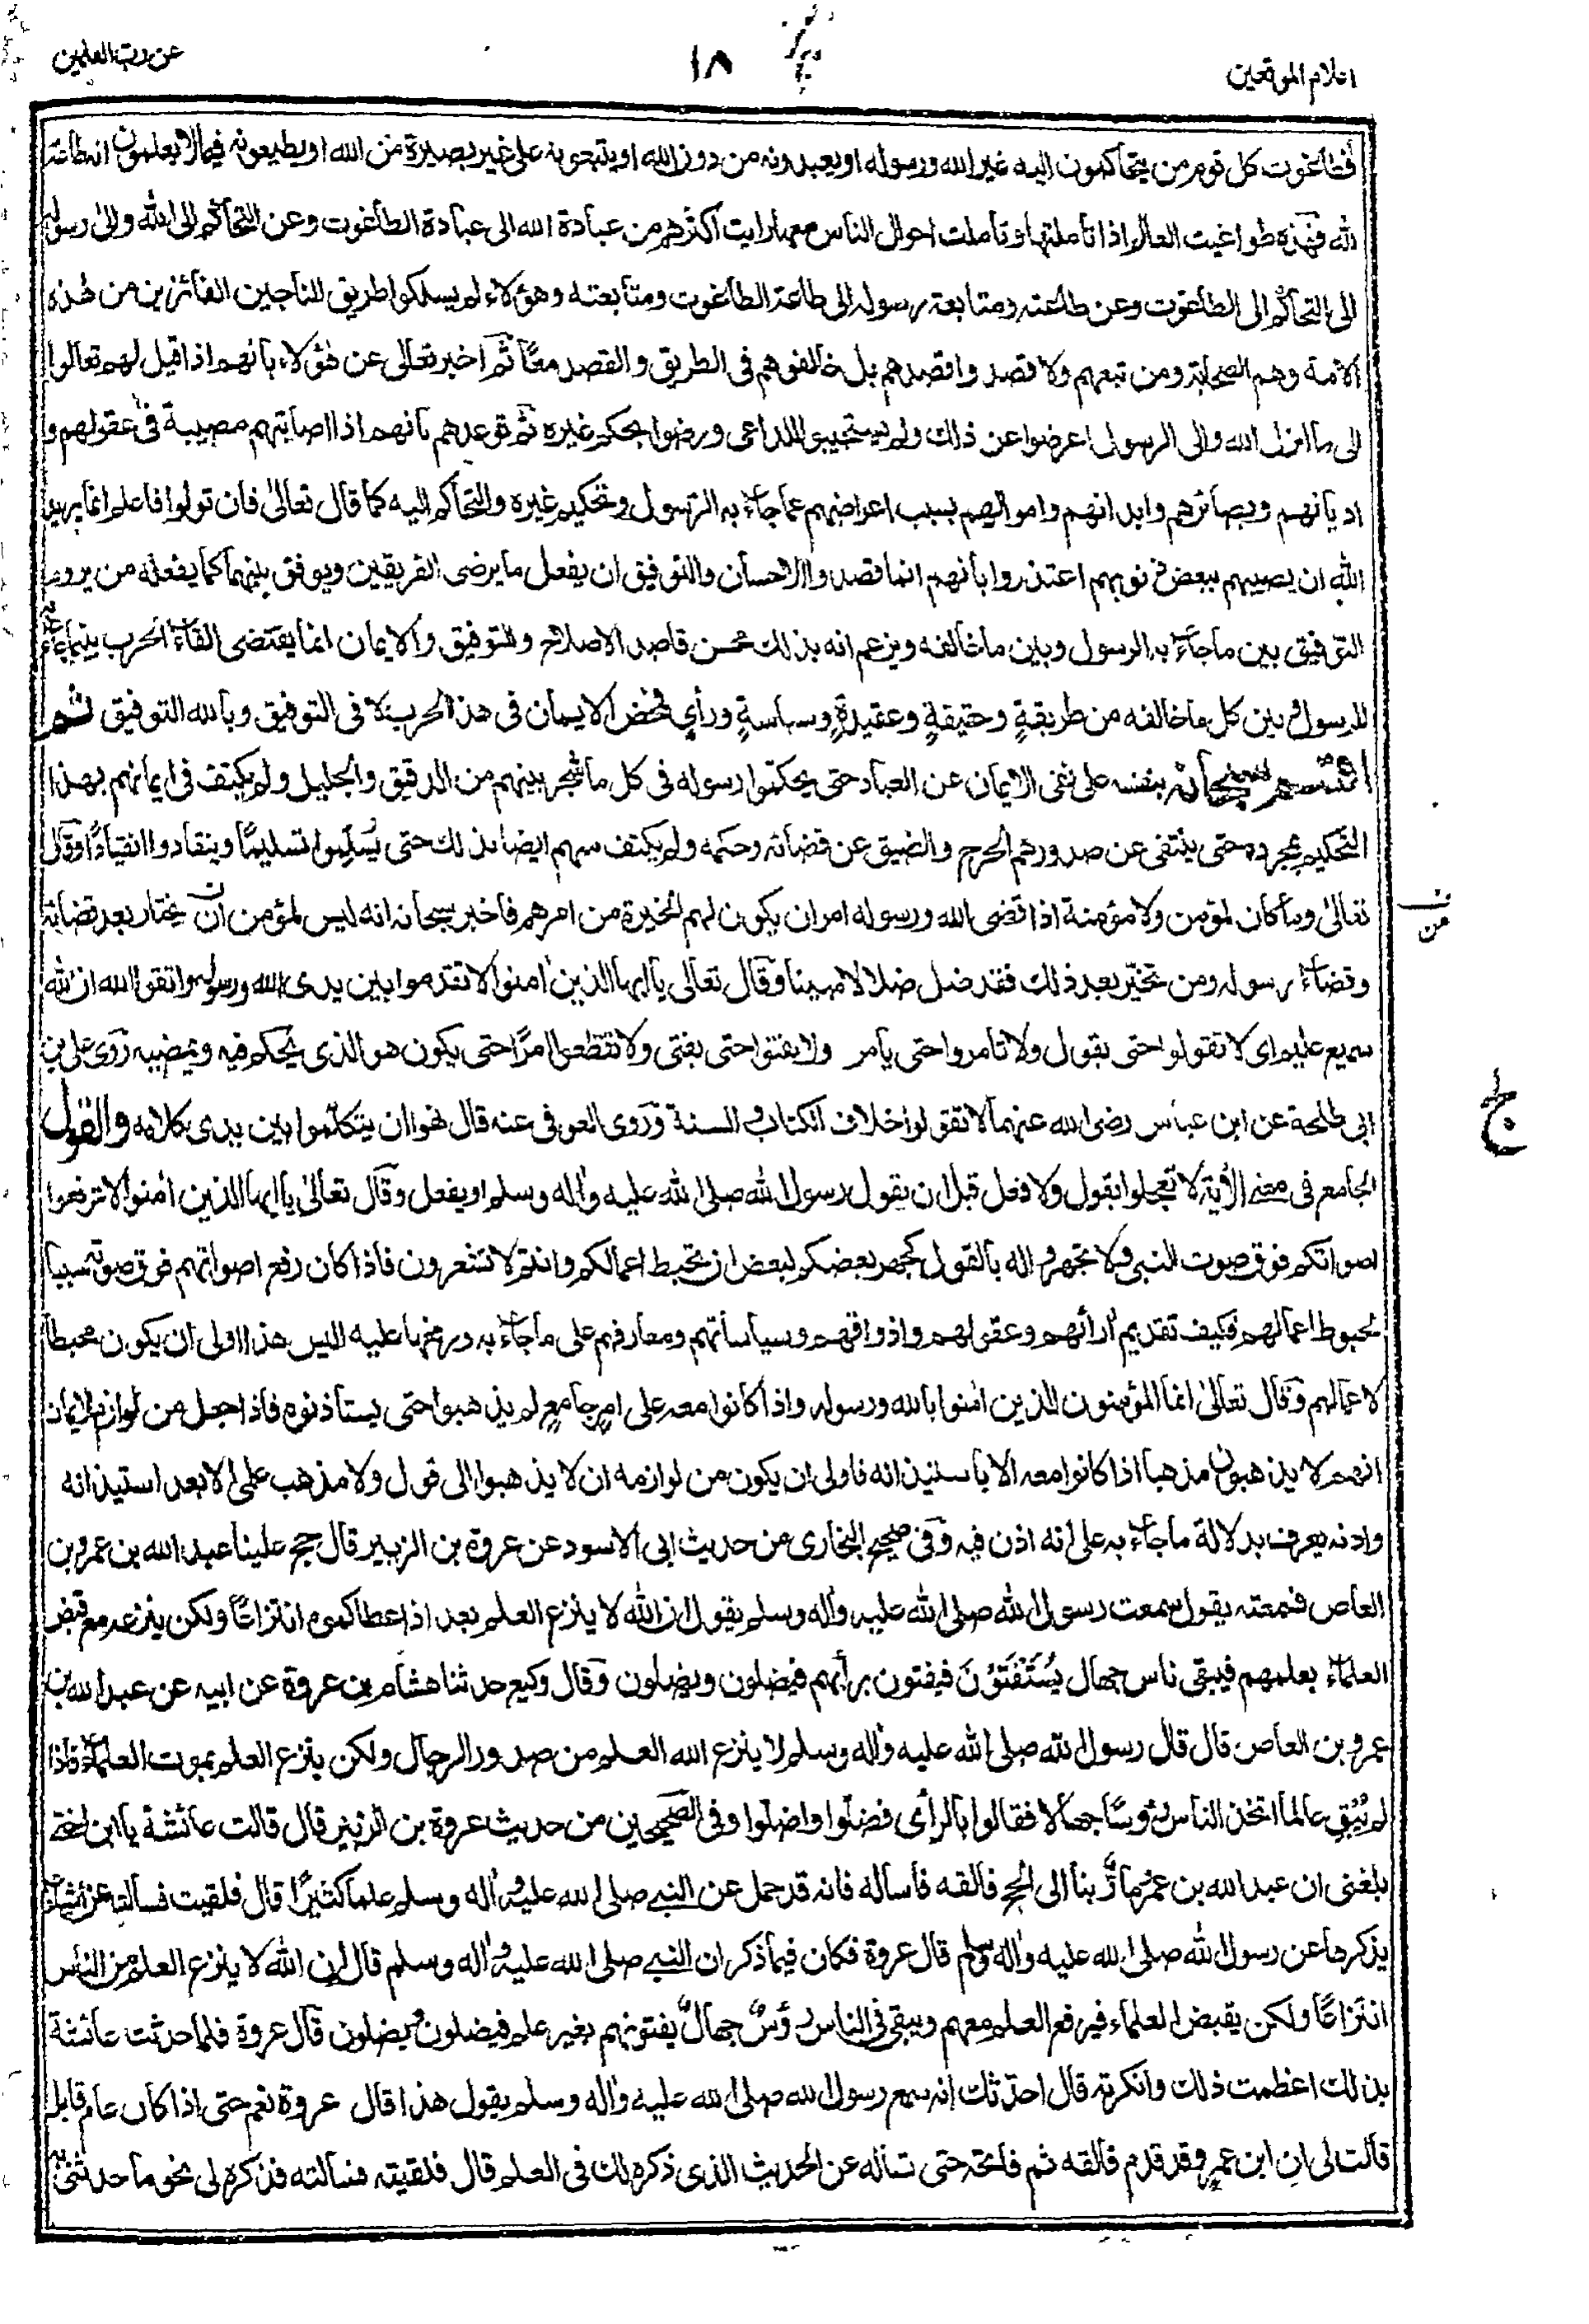 اعلام الموقعين
١٨
عن رب العلمين
فطاغوت كل قوم من يتحاكمون اليه غير الله ورسوله او يعبدونه من دون الله او يتبعونه على غير بصيرة من الله او يطيعونه فيما لا يعلمون انه طاعة
لله فهذه طواغيت العالم اذا تأملتها وتأملت احوال الناس معها رايت اكثرهم من عبادة الله الى عبادة الطاغوت وعن التحاكم الى الله والى رسوله
الى التحاكم الى الطاغوت وعن طاعته ومتابعة رسوله الى طاعة الطاغوت ومتابعته وهؤلاء لم يسلكوا طريق الناجين الفائزين من هذه
الامة وهم الصحابة ومن تبعهم ولا قصدوا قصدهم بل خالفوهم فى الطريق والقصد معًا ثم اخبر تعالى عن هؤلاء بانهم اذا قيل لهم تعالوا
الى ما انزل الله والى الرسول اعرضوا عن ذلك ولم يستجيبوا للداعى ورضوا بحكم غيره ثم توعدهم بانهم اذا اصابتهم مصيبة فى عقولهم و
اديانهم وبصائرهم وابدانهم واموالهم بسبب اعراضهم عما جاء به الرسول وتحكيم غيره والتحاكم اليه كما قال تعالى فان تولوا فاعلم انما يريد
الله ان يصيبهم ببعض ذنوبهم اعتذروا بانهم انما قصدوا الاحسان والتوفيق ان يفعل ما يرضى الفريقين ويوفق بينهما كما يفعله من يروم
التوفيق بين ما جاء به الرسول وبين ما خالفه ويزعم انه بذلك محسن قاصد الاصلاح والتوفيق والايمان انما يقتضى القاء الحرب بين ما جاء به
الرسول وبين كل ما خالفه من طريقةٍ وحقيقةٍ وعقيدةٍ وسياسةٍ ورأيٍ فمحض الايمان فى هذا الحرب لا فى التوفيق وبالله التوفيق ثم
اقسم سبحانه بنفسه على نفى الايمان عن العباد حتى يحكموا رسوله فى كل ما شجر بينهم من الدقيق والجليل ولم يكتف فى ايمانهم بهذا
التحكيم بمجرده حتى ينتفى عن صدورهم الحرج والضيق عن قضائه وحكمه ولم يكتف منهم ايضا بذلك حتى يسلموا تسليمًا وينقادوا انقيادًا وقال
تعالى وما كان لمؤمن ولا مؤمنة اذا قضى الله ورسوله امرا ان يكون لهم الخيرة من امرهم فاخبر سبحانه انه ليس لمؤمن ان يختار بعد قضائه
وقضاء رسوله ومن تخيّر بعد ذلك فقد ضل ضلالا مبينا وقال تعالى يا ايها الذين امنوا لا تقدموا بين يدى الله ورسوله واتقوا الله ان الله
سميع عليم اى لا تقولوا حتى يقول ولا تأمروا حتى يأمر ولا يفتوا حتى يفتى ولا تقطعوا امرًا حتى يكون هو الذى يحكم فيه ويمضيه روى على بن
ابى طلحة عن ابن عباس رضى الله عنهما لا تقولوا خلاف الكتاب والسنة وروى العوفى عنه قال نهوا ان يتكلموا بين يدى كلامه والقول
الجامع فى معنى الآية لا تعجلوا بقول ولا فعل قبل ان يقول رسول الله صلى الله عليه واله وسلم او يفعل وقال تعالى يا ايها الذين امنوا لا ترفعوا
اصواتكم فوق صوت النبى ولا تجهروا له بالقول كجهر بعضكم لبعض ان تحبط اعمالكم وانتم لا تشعرون فاذا كان رفع اصواتهم فوق صوته سببا
لحبوط اعمالهم فكيف تقديم أرائهم وعقولهم واذواقهم وسياساتهم ومعارفهم على ما جاء به ورفعها عليه اليس هذا اولى ان يكون محبطا
لاعمالهم وقال تعالى انما المؤمنون الذين امنوا بالله ورسوله واذا كانوا معه على امرٍ جامعٍ لم يذهبوا حتى يستأذنوه فاذا جعل من لوازم الايمان
انهم لا يذهبون مذهبا اذا كانوا معه الا باستيذانه فاولى ان يكون من لوازمه ان لا يذهبوا الى قول ولا مذهب علمى الا بعد استيذانه
واذنه يعرف بدلالة ما جاء به على انه اذن فيه وفى صحيح البخارى من حديث ابى الاسود عن عروة بن الزبير قال حج علينا عبد الله بن عمرو بن
العاص فسمعته يقول سمعت رسول الله صلى الله عليه واله وسلم يقول ان الله لا ينزع العلم بعد اذ اعطاكموه انتزاعًا ولكن ينزعه مع قبض
العلماء بعلمهم فيبقى ناس جهال يُسْتَفْتَوْنَ فيفتون برأيهم فيضلون ويضلون وقال وكيع حدثنا هشام بن عروة عن ابيه عن عبد الله بن
عمرو بن العاص قال قال رسول الله صلى الله عليه واله وسلم لا ينزع الله العلم من صدور الرجال ولكن ينزع العلم بموت العلماء فاذا
لم يُبْقِ عالما اتخذ الناس رءوسًا جهالا فقالوا بالرأى فضلّوا واضلّوا وفى الصحيحين من حديث عروة بن الزبير قال قالت عائشة يا ابن اختى
بلغنى ان عبد الله بن عمرو مارٌّ بنا الى الحج فالقه فاسأله فانه قد حمل عن النبى صلى الله عليه واله وسلم علما كثيرًا قال فلقيت فسألته عن اشياء
يذكرها عن رسول الله صلى الله عليه واله وسلم قال عروة فكان فيما ذكر ان النبى صلى الله عليه واله وسلم قال ان الله لا ينزع العلم من الناس
انتزاعًا ولكن يقبض العلماء فيرفع العلم معهم ويبقى فى الناس رؤسٌ جهالٌ يفتونهم بغير علم فيضلون ويضلون قال عروة فلما حدثت عائشة
بذلك اعظمت ذلك وانكرته قال احدّثك انه سمع رسول الله صلى الله عليه واله وسلم يقول هذا قال عروة نعم حتى اذا كان عام قابل
قالت لى ان ابن عمرو قد قدم فالقه ثم فاتحه حتى تسأله عن الحديث الذى ذكره لك فى العلم قال فلقيته فسألته فذكره لى نحو ما حدثنى
من
ج